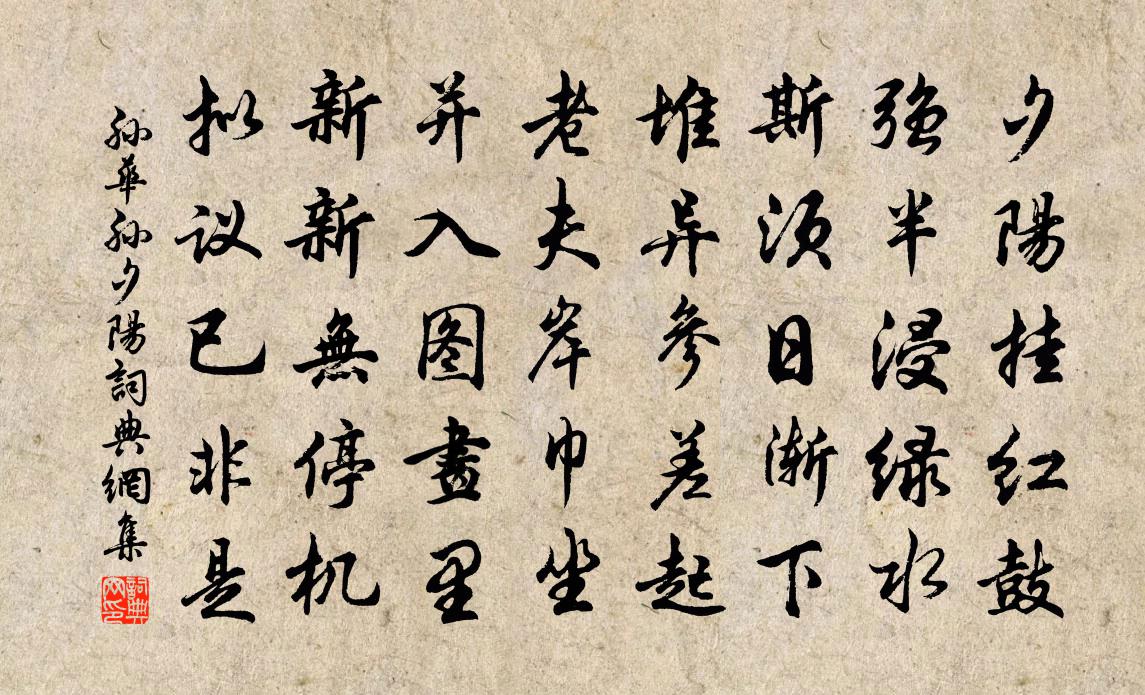 夕陽挂红鼓
强半浸緑水
斯须日渐下
堆异參差起
老夫岸巾坐
并入图畫里
新新無停机
拟议已非是
孙華孙夕陽詞典網集
詞典网印